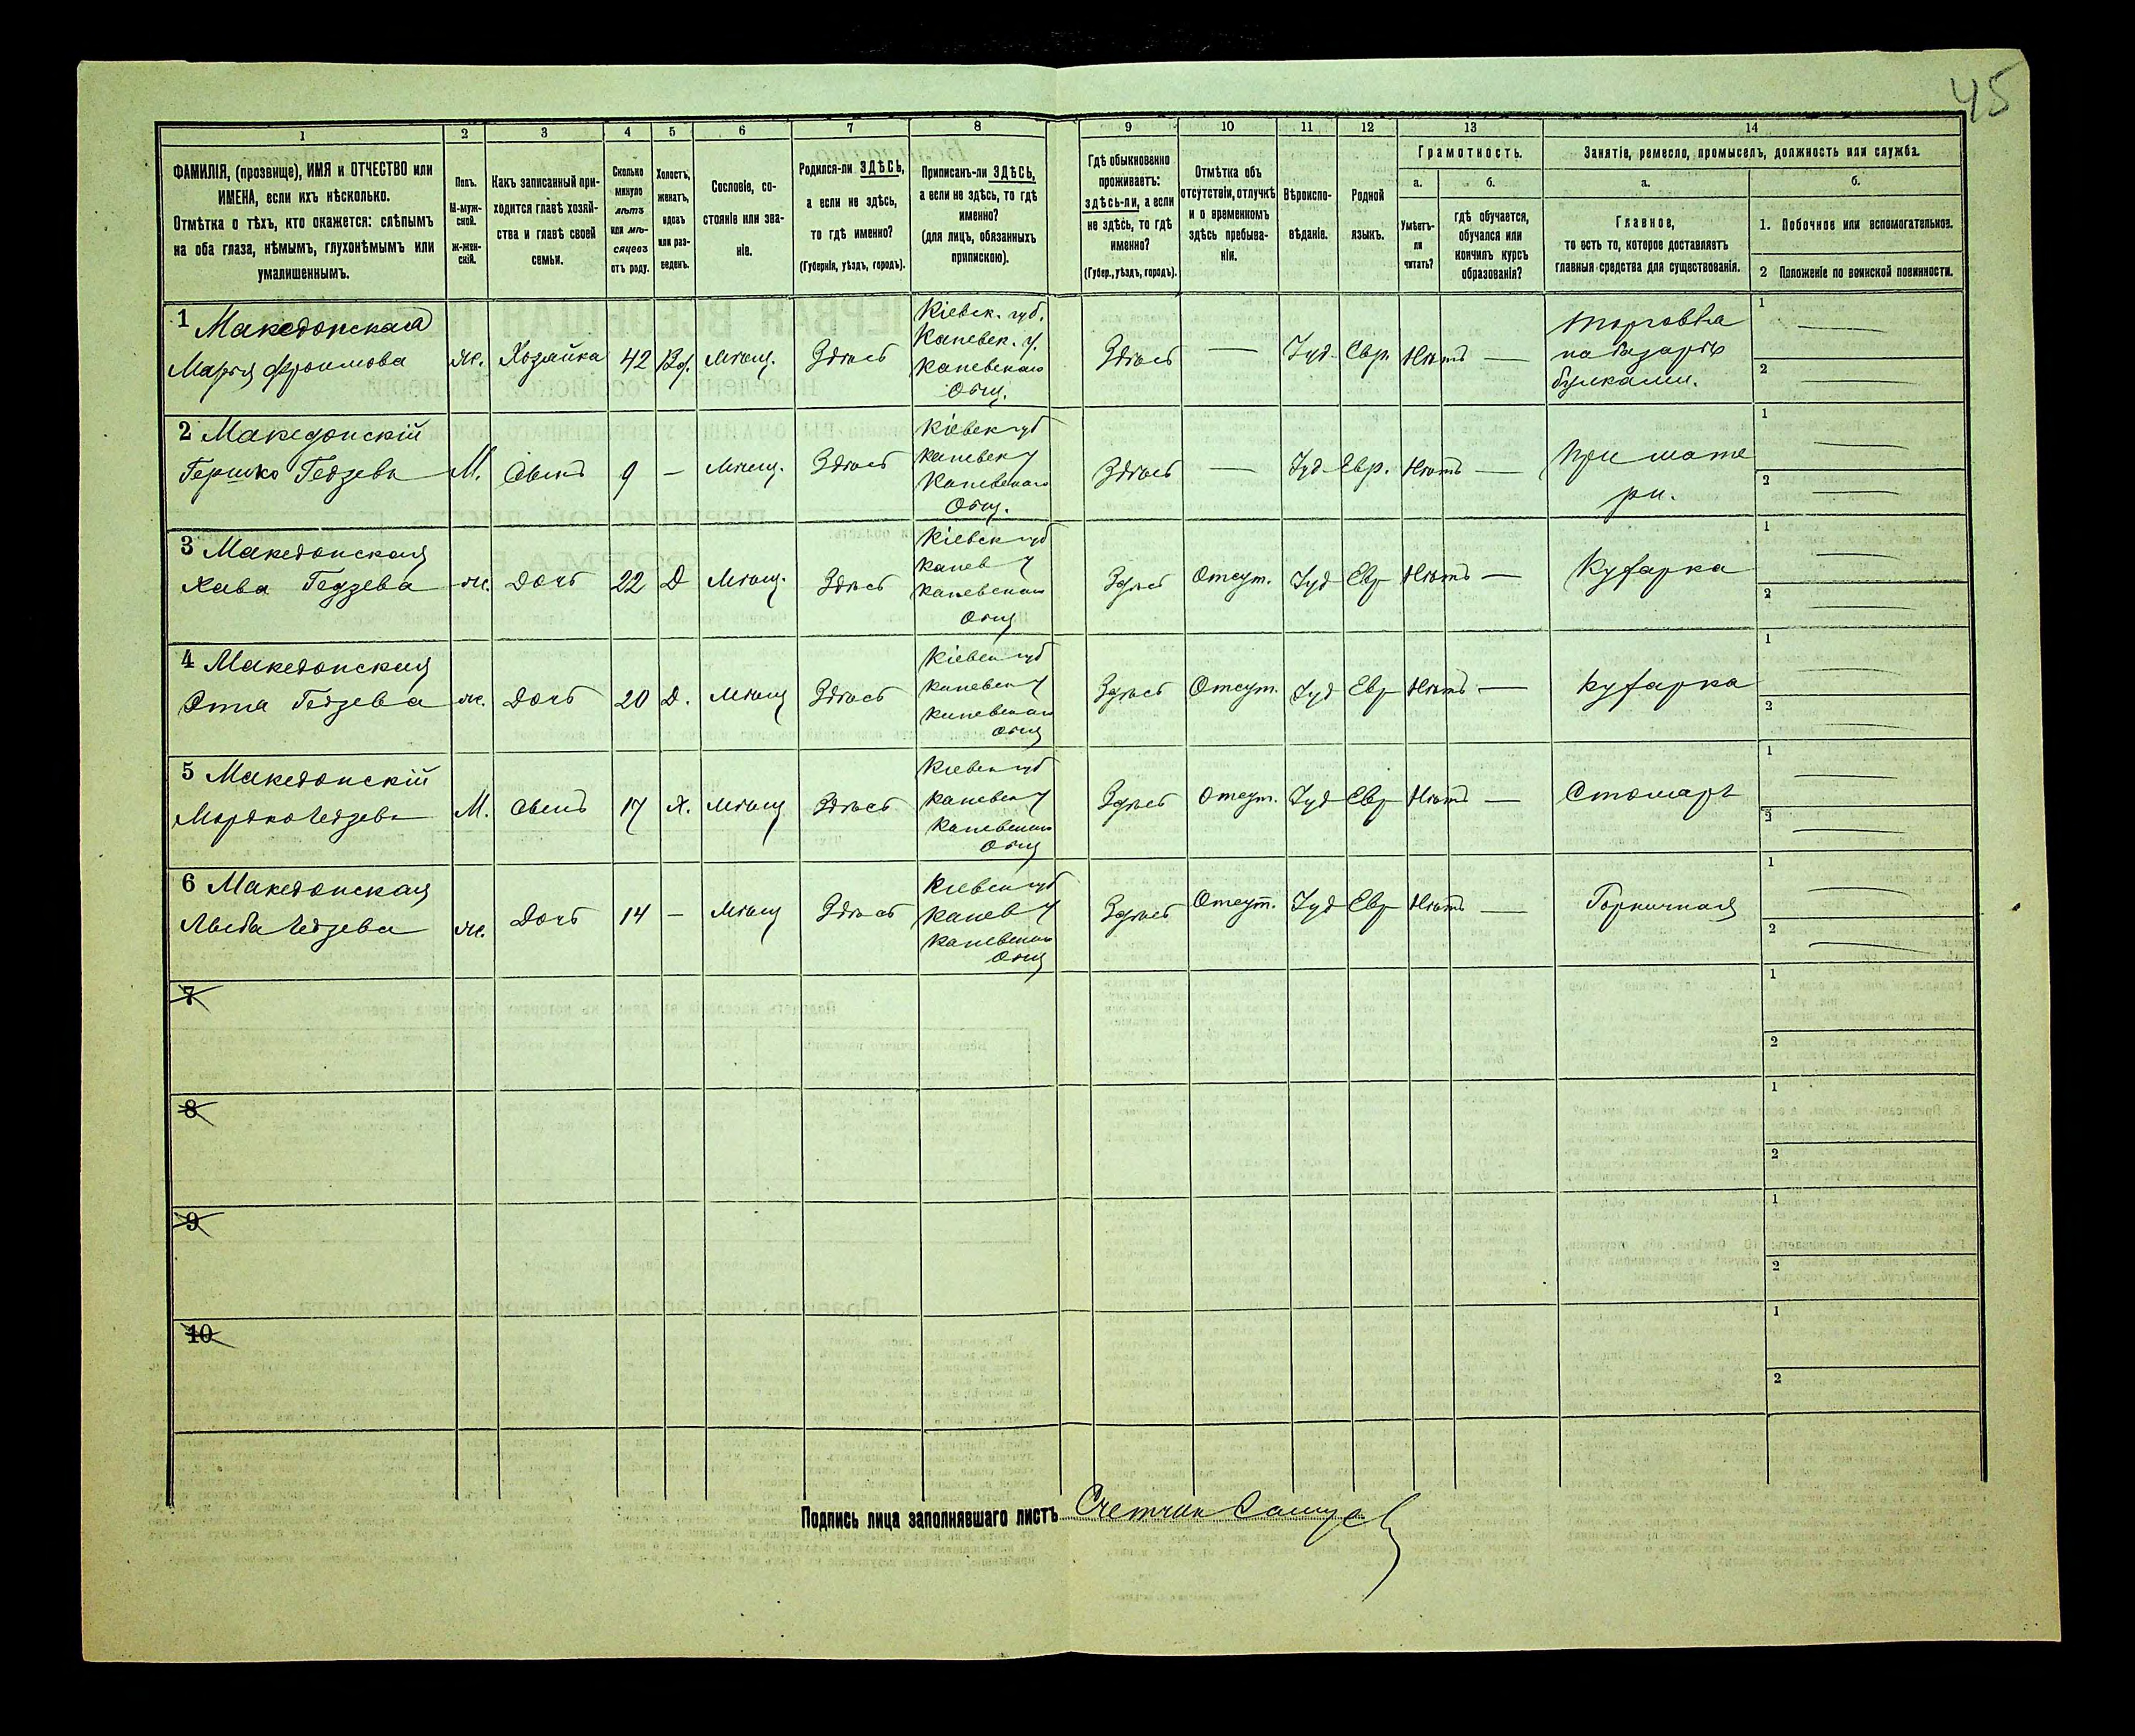 45
1 2 3 4 5 6 7 8 9 10 11 12 13 14
ФАМИЛІЯ, (прозвище), ИМЯ и ОТЧЕСТВО или
ИМЕНА, если ихъ нѣсколько.
Отмѣтка о тѣхъ, кто окажется: слѣпымъ
на оба глаза, нѣмымъ, глухонѣмымъ или
умалишеннымъ.
Полъ.
М-муж-
ской.
Ж-жен-
скій.
Какъ записанный при-
ходится главѣ хозяй-
ства и главѣ своей
семьи.
Сколько
минуло
лѣтъ
или мѣ-
сяцевъ
отъ роду.
Холостъ,
женатъ,
вдовъ
или раз-
веденъ.
Сословіе, со-
стояніе или зва-
ніе.
Родился-ли ЗДѢСЬ,
а если не здѣсь,
то гдѣ именно?
(Губернія, уѣздъ, городъ).
Приписанъ-ли ЗДѢСЬ,
а если не здѣсь, то гдѣ
именно?
(для лицъ, обязанныхъ
припискою).
Гдѣ обыкновенно
проживаетъ:
здѣсь-ли, а если
не здѣсь, то гдѣ
именно?
(Губер., уѣздъ, городъ).
Отмѣтка объ
отсутствіи, отлучкѣ
и о временномъ
здѣсь пребыва-
ніи.
Вѣроиспо-
вѣданіе.
Родной
языкъ.
Грамотность.
а.
Умѣетъ-
ли
читать?
б.
гдѣ обучается,
обучался или
кончилъ курсъ
образованія?
Занятіе, ремесло, промыселъ, должность или служба.
а.
Главное,
то есть то, которое доставляетъ
главныя средства для существованія.
б.
1. Побочное или вспомогательное.
2 Положеніе по воинской повинности.
1 Македонская
Марія Фроимова
ж. Хозяйка 42 Вд. Мѣщ. Здѣсь
Кіевск. губ.
Каневск. у.
Каневскаго
Общ.
Здѣсь — Іуд. Евр. Нѣтъ —
торговка
на базарѣ
булками.
1 —
2 —
2 Македонскій
Гершко Гедзевъ
М. Сынъ 9 — Мѣщ. Здѣсь
Кіевск губ
Каневск у
Каневскаго
Общ.
Здѣсь — Іуд Евр. Нѣтъ —
При мате
ри.
1 —
2 —
3 Македонская
Хава Гедзева
ж. Дочь 22 Д Мѣщ. Здѣсь
Кіевск губ
Канев у
Каневскаго
Общ
Здѣсь Отсут. Іуд Евр Нѣтъ —
Кухарка
1 —
2 —
4 Македонская
Этта Гедзева
ж. Дочь 20 Д. Мѣщ Здѣсь
Кіевск губ
Каневск у
Каневскаго
Общ
Здѣсь Отсут. Іуд Евр Нѣтъ —
Кухарка
1 —
2 —
5 Македонскій
Мордко Гедзевъ
М. Сынъ 17 Х. Мѣщ Здѣсь
Кіевск губ
Каневск у
Каневскаго
Общ
Здѣсь Отсут. Іуд Евр Нѣтъ —
Столяръ
1 —
2 —
6 Македонская
Гедзева
ж. Дочь 14 — Мѣщ Здѣсь
Кіевск губ
Канев у
Каневскаго
Общ
Здѣсь Отсут. Іуд Евр Нѣтъ —
Горничная
1 —
2 —
7
1
2
8
1
2
9
1
2
10
1
2
Подпись лица заполнявшаго листъ Счетчик